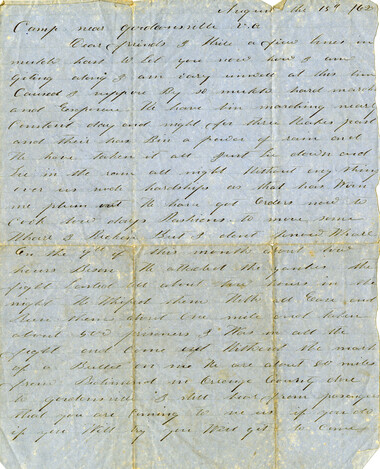 August the 15th 1862
Camp near gordonsville va
Dear friends I this a few lines in
hast to let you now how I am
geting along I am vary unwell at this time
Caused I suppose By so hard marches
and Exposure We have bin marching nearly
Constant day and night for three weaks past
and their has Bin a power of rain and
We have taken it all Just lie down and
lie in the rain all night Without any thing
over us such hardships as that has Worn
me We have got Orders now to
Cook two days Rashions to move some
Whare I Reckon But I dont know Whare
On the 9th of this month about two
hours Before We attacked the yankes the
fight Lasted till about two hours in the
night We Whiped them With all Ease and
Run them about One mile and taken
about 500 prisoners I Was in all the
fight and Come out Without the mark
of a Bullet on me We are about 80 miles
from Richmond in Orange County close
to gordonsville I still hear from
that you are Coming to see us if you do
if you Will try you Will git to Come